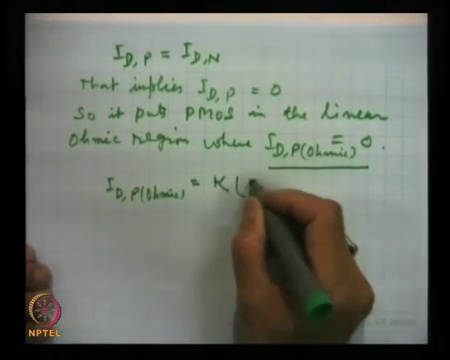 I_D,P = I_D,N
That implies I_D,P = 0
So it puts PMOS in the linear
Ohmic region where I_D,P(Ohmic) = 0.
I_D,P(Ohmic) = K (
NPTEL